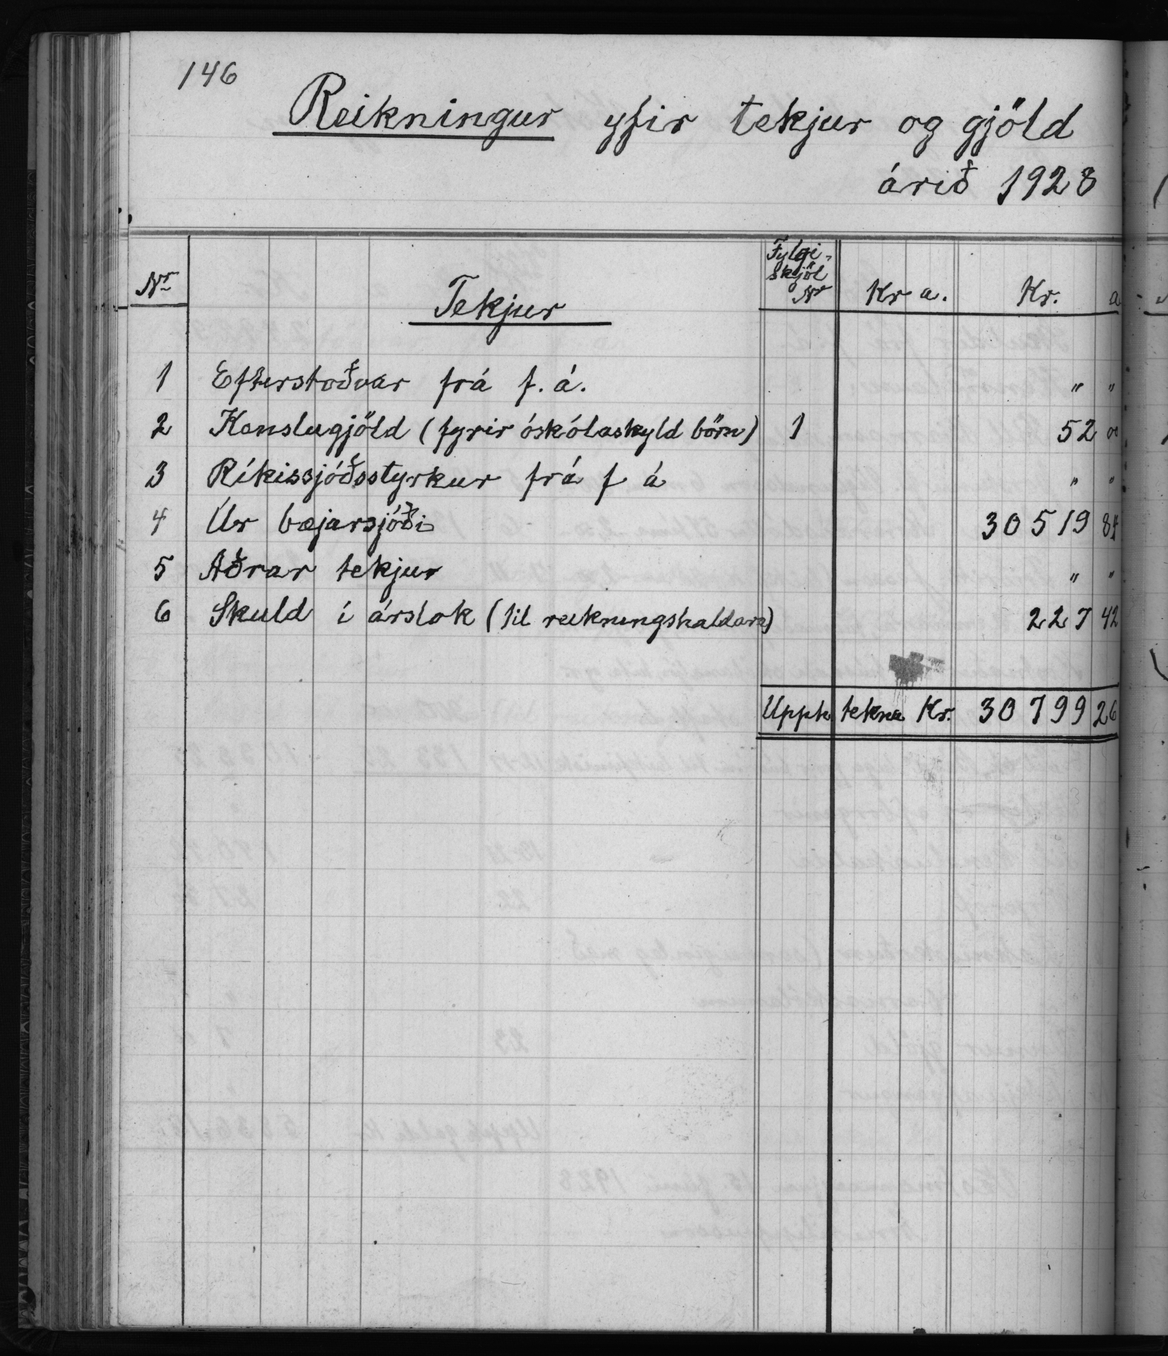 146
Reikningur yfir tekjur og gjöld
árið 1928
Nr Tekjur Fylgi-skjöl Nr Kr a. Kr. a
1 Efterstoðvar frá f. á. " "
2 Kenslugjöld (fyrir óskólaskyld börn) 1 52 00
3 Ríkissjóðsstyrkur frá f á " "
4 Úr bæjarsjóði 30519 84
5 Aðrar tekjur " "
6 Skuld í árslok (til reikningshaldara) 227 42
Upph tekna Kr. 30799 26